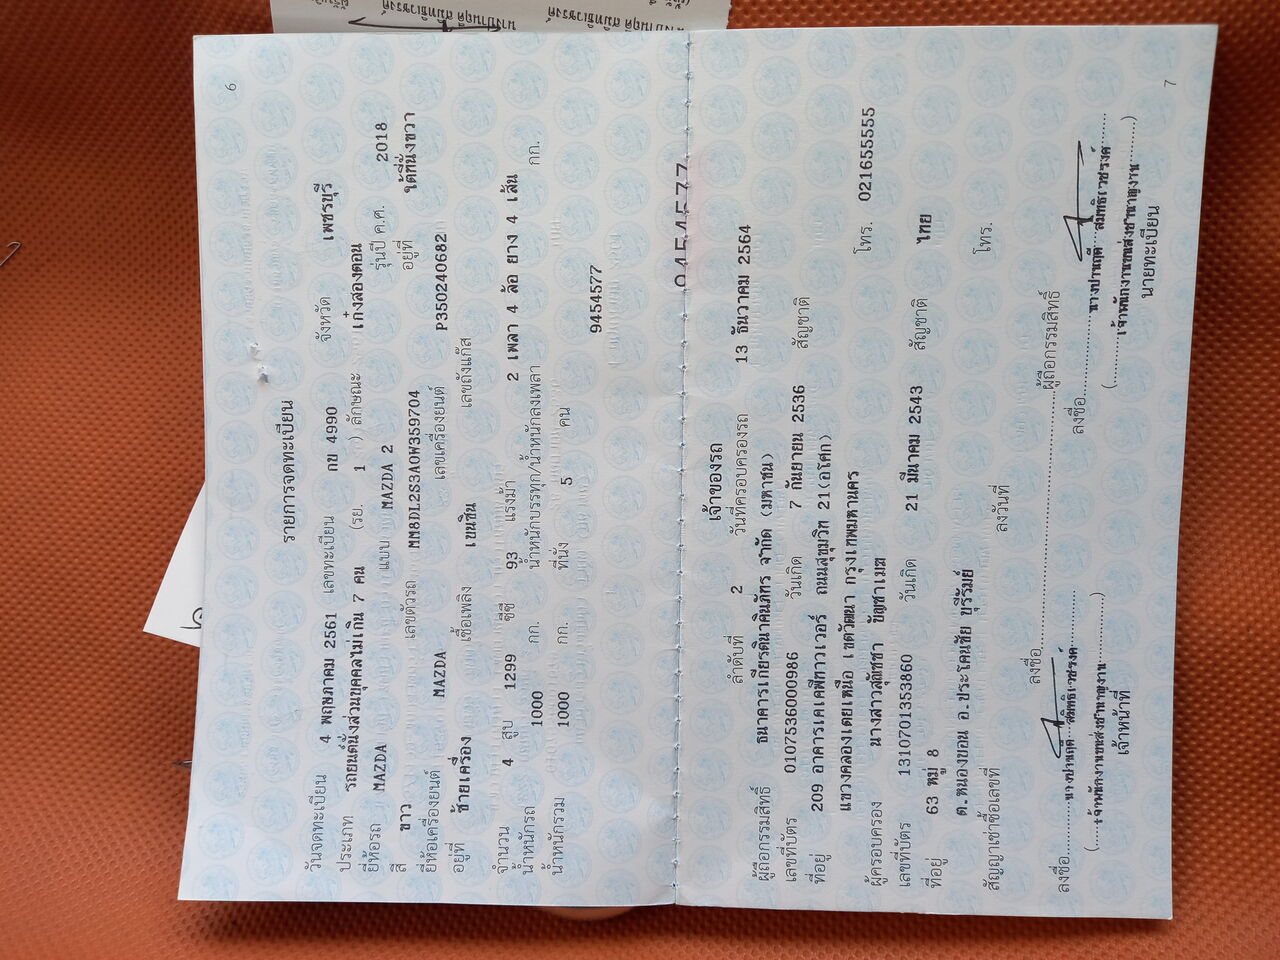 6
รายการจดทะเบียน
วันจดทะเบียน 4 พฤษภาคม 2561 เลขทะเบียน กข 4990 จังหวัด เพชรบุรี
ประเภท รถยนต์นั่งส่วนบุคคลไม่เกิน 7 คน (รย. 1 ) ลักษณะ เก๋งสองตอน
ยี่ห้อรถ MAZDA แบบ MAZDA 2 รุ่นปี ค.ศ. 2018
สี ขาว เลขตัวรถ MM8DL2S3A0W359704 อยู่ที่ ใต้ที่นั่งขวา
ยี่ห้อเครื่องยนต์ MAZDA เลขเครื่องยนต์ P350240682
อยู่ที่ ซ้ายเครื่อง เชื้อเพลิง เบนซิน เลขถังแก๊ส
จำนวน 4 สูบ 1299 ซีซี 93 แรงม้า 2 เพลา 4 ล้อ ยาง 4 เส้น
น้ำหนักรถ 1000 กก. น้ำหนักบรรทุก/น้ำหนักลงเพลา กก.
น้ำหนักรวม 1000 กก. ที่นั่ง 5 คน
9454577
7
เจ้าของรถ
ลำดับที่ 2 วันที่ครอบครองรถ 13 ธันวาคม 2564
ผู้ถือกรรมสิทธิ์ ธนาคารเกียรตินาคินภัทร จำกัด (มหาชน)
เลขที่บัตร 0107536000986 วันเกิด 7 กันยายน 2536 สัญชาติ
ที่อยู่ 209 อาคารเคเคพีทาวเวอร์ ถนนสุขุมวิท 21(อโศก)
แขวงคลองเตยเหนือ เขตวัฒนา กรุงเทพมหานคร
โทร. 021655555
ผู้ครอบครอง นางสาวสุณัชชา บัญชาเมฆ
เลขที่บัตร 1310701353860 วันเกิด 21 มีนาคม 2543 สัญชาติ ไทย
ที่อยู่ 63 หมู่ 8
ต.หนองบอน อ.ประโคนชัย บุรีรัมย์
โทร.
สัญญาเช่าซื้อเลขที่ ลงวันที่
ลงชื่อ ผู้ถือกรรมสิทธิ์
ลงชื่อ ลงชื่อ
(เจ้าพนักงานขนส่งชำนาญงาน) (เจ้าพนักงานขนส่งชำนาญงาน)
เจ้าหน้าที่ นายทะเบียน